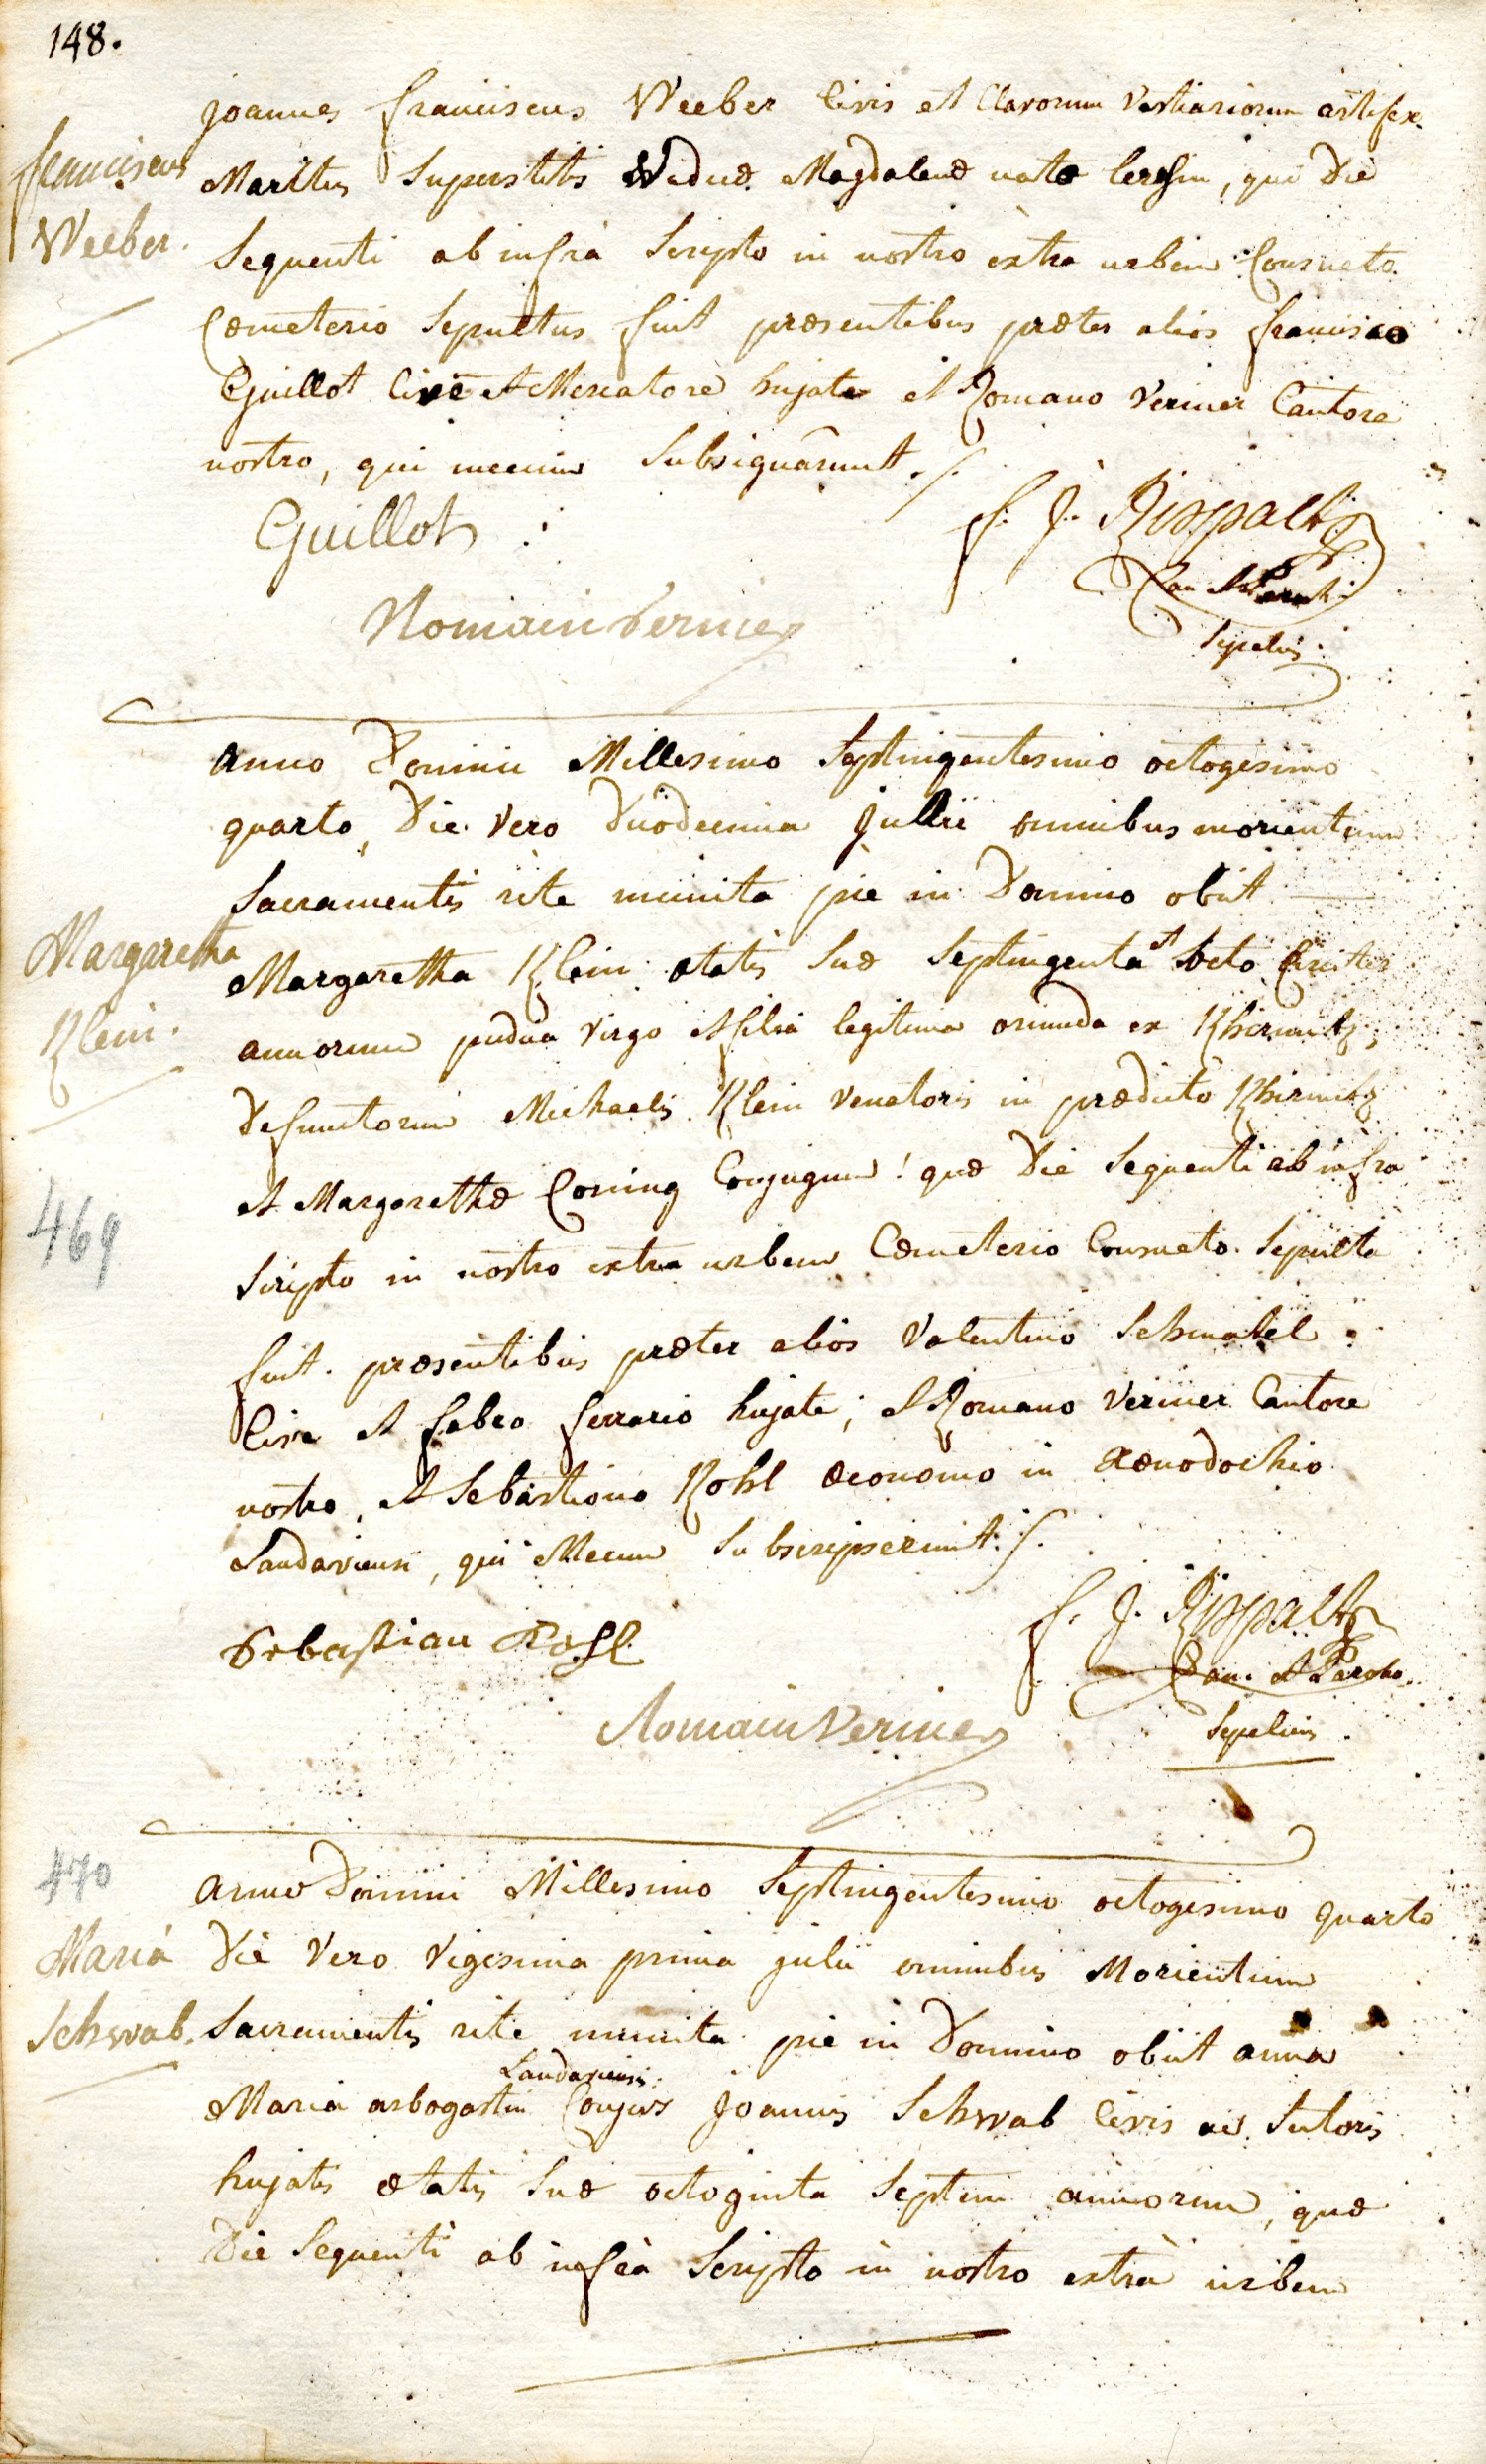 148.
Joannes franciscus Weeber Civis et Clavorum Vestiariorum artifex
franciscus
Weeber.
Maritus Superstitis Viduæ Magdalenæ natæ, qui Die
Sequenti ab infrà Scripto in nostro extra urbem Consueto
Cœmeterio Sepultus fuit præsentibus præter alios francisco
Guillot Cive et Mercatore hujate et Romano Vernier Cantore
nostro, qui mecum Subsignârunt ./.
Guillot
f. J. Rispalt
Can et Paroch.
Romain Vernier
Sepelivi
anno Domini Millesimo Septingentesimo octogesimo
quarto, Die Vero Duodecima Jullii omnibus morientium
Sacramentis rite munita piè in Domino obiit
Margaretha
Klein.
Margaretha Klein ætatis Suæ Septingenta et octo Circiter
annorum pudica Virgo et filia legitima oriunda ex Khirmitz,
Defunctorum Michaelis Klein Venatoris in prædicto Khirmitz
469
et Margarethæ Coning Conjugum! quæ Die Sequenti ab infra
Scripto in nostro extra urbem Cœmeterio Consueto Sepulta
fuit. præsentibus præter alios Valentino Schnabel
Cive et fabro ferrario hujate; et Romano Vernier Cantore
nostro, et Sebastiano Kohl œconomo in Xenodochio
Landaviensi, qui Mecum Subscripserunt ./.
Sebastian Kohl
f. J. Rispalt
Can. et Parocho.
Romain Vernier
Sepelivi
470
anno Domini Millesimo Septingentesimo octogesimo quarto
Mariá
Schwab.
Die Vero Vigesima prima julii omnibus Morientium
Sacramentis rite munita pie in Domino obiit anna
Landaviensis
Maria arbogastin Conjux Joannis Schwab Civis ac Sutoris
hujatis ætatis Suæ octoginta Septem annorum, quæ
Die Sequenti ab infrà Scripto in nostro extrà urbem